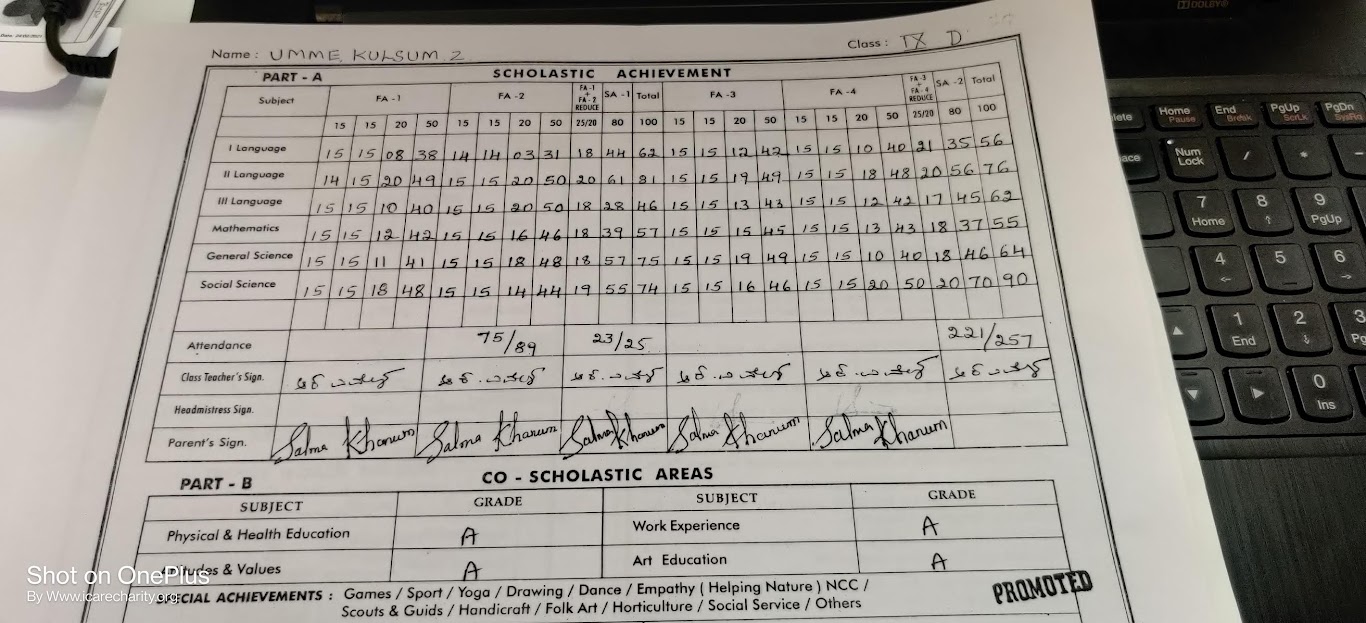 Name : UMME KULSUM Z Class : IX D
PART - A SCHOLASTIC ACHIEVEMENT
Subject FA - 1 FA - 2 FA - 1 + FA - 2 REDUCE SA - 1 Total FA - 3 FA - 4 FA - 3 + FA - 4 REDUCE SA - 2 Total
15 15 20 50 15 15 20 50 25/20 80 100 15 15 20 50 15 15 20 50 25/20 80 100
I Language 15 15 08 38 14 14 03 31 18 44 62 15 15 12 42 15 15 10 40 21 35 56
II Language 14 15 20 49 15 15 20 50 20 61 81 15 15 19 49 15 15 18 48 20 56 76
III Language 15 15 10 40 15 15 20 50 18 28 46 15 15 13 43 15 15 12 42 17 45 62
Mathematics 15 15 12 42 15 15 16 46 18 39 57 15 15 15 45 15 15 13 43 18 37 55
General Science 15 15 11 41 15 15 18 48 18 57 75 15 15 19 49 15 15 10 40 18 46 64
Social Science 15 15 18 48 15 15 14 44 19 55 74 15 15 16 46 15 15 20 50 20 70 90
Attendance 75/89 23/25 221/257
Class Teacher's Sign.
Headmistress Sign.
Parent's Sign. Salma Khanum Salma Khanum Salma Khanum Salma Khanum Salma Khanum
PART - B CO - SCHOLASTIC AREAS
SUBJECT GRADE SUBJECT GRADE
Physical & Health Education A Work Experience A
& Values A Art Education A
ACHIEVEMENTS : Games / Sport / Yoga / Drawing / Dance / Empathy ( Helping Nature ) NCC /
Scouts & Guids / Handicraft / Folk Art / Horticulture / Social Service / Others
PROMOTED
Shot on OnePlus
By Www.icarecharity.org
DOLBY
Home Pause End Break PgUp ScrLk PgDn SysRq
Num Lock / * -
7 Home 8 9 PgUp
4 5 6
1 End 2 3
0 Ins